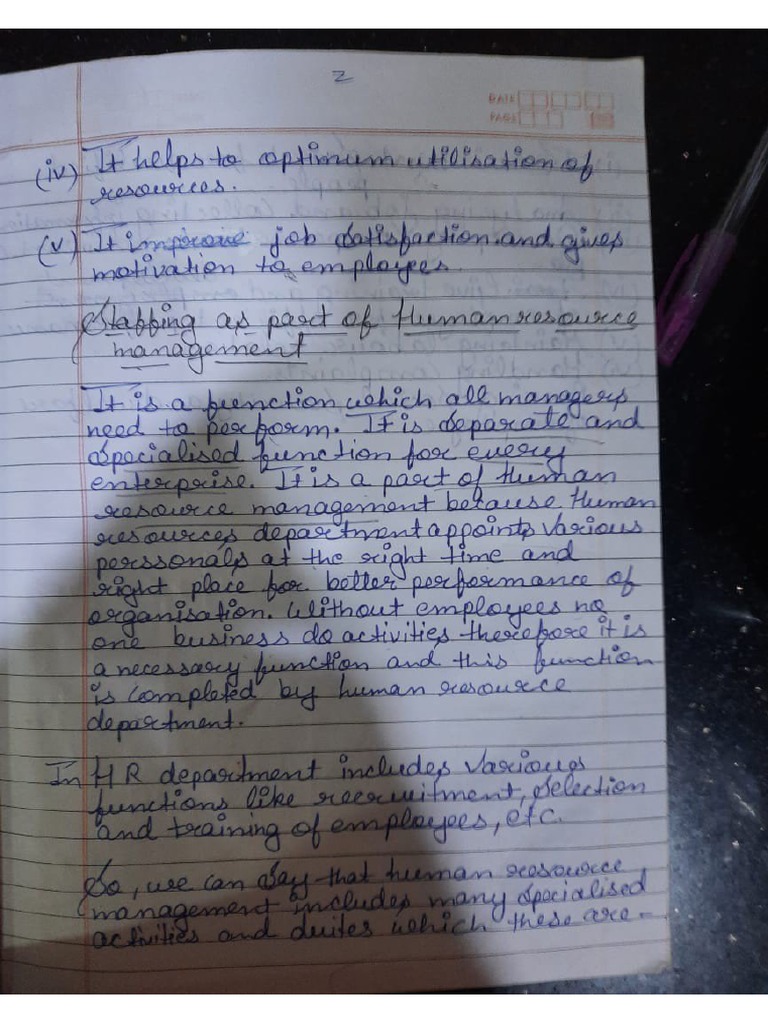 2
DATE
PAGE
(iv) It helps to optimum utilisation of
resources.
(v) It improve job satisfaction and gives
motivation to employees.
Staffing as part of Human resource
management
It is a function which all managers
need to perform. It is separate and
specialised function for every
enterprise. It is a part of Human
resource management because Human
resources department appoints various
perssonals at the right time and
right place for better performance of
organisation. Without employees no
one business do activities therefore it is
a necessary function and this function
is completed by human resource
department.
In HR department includes various
functions like recruitment, selection
and training of employees, etc.
So, we can say that human resource
management includes many specialised
activities and duites which these are-